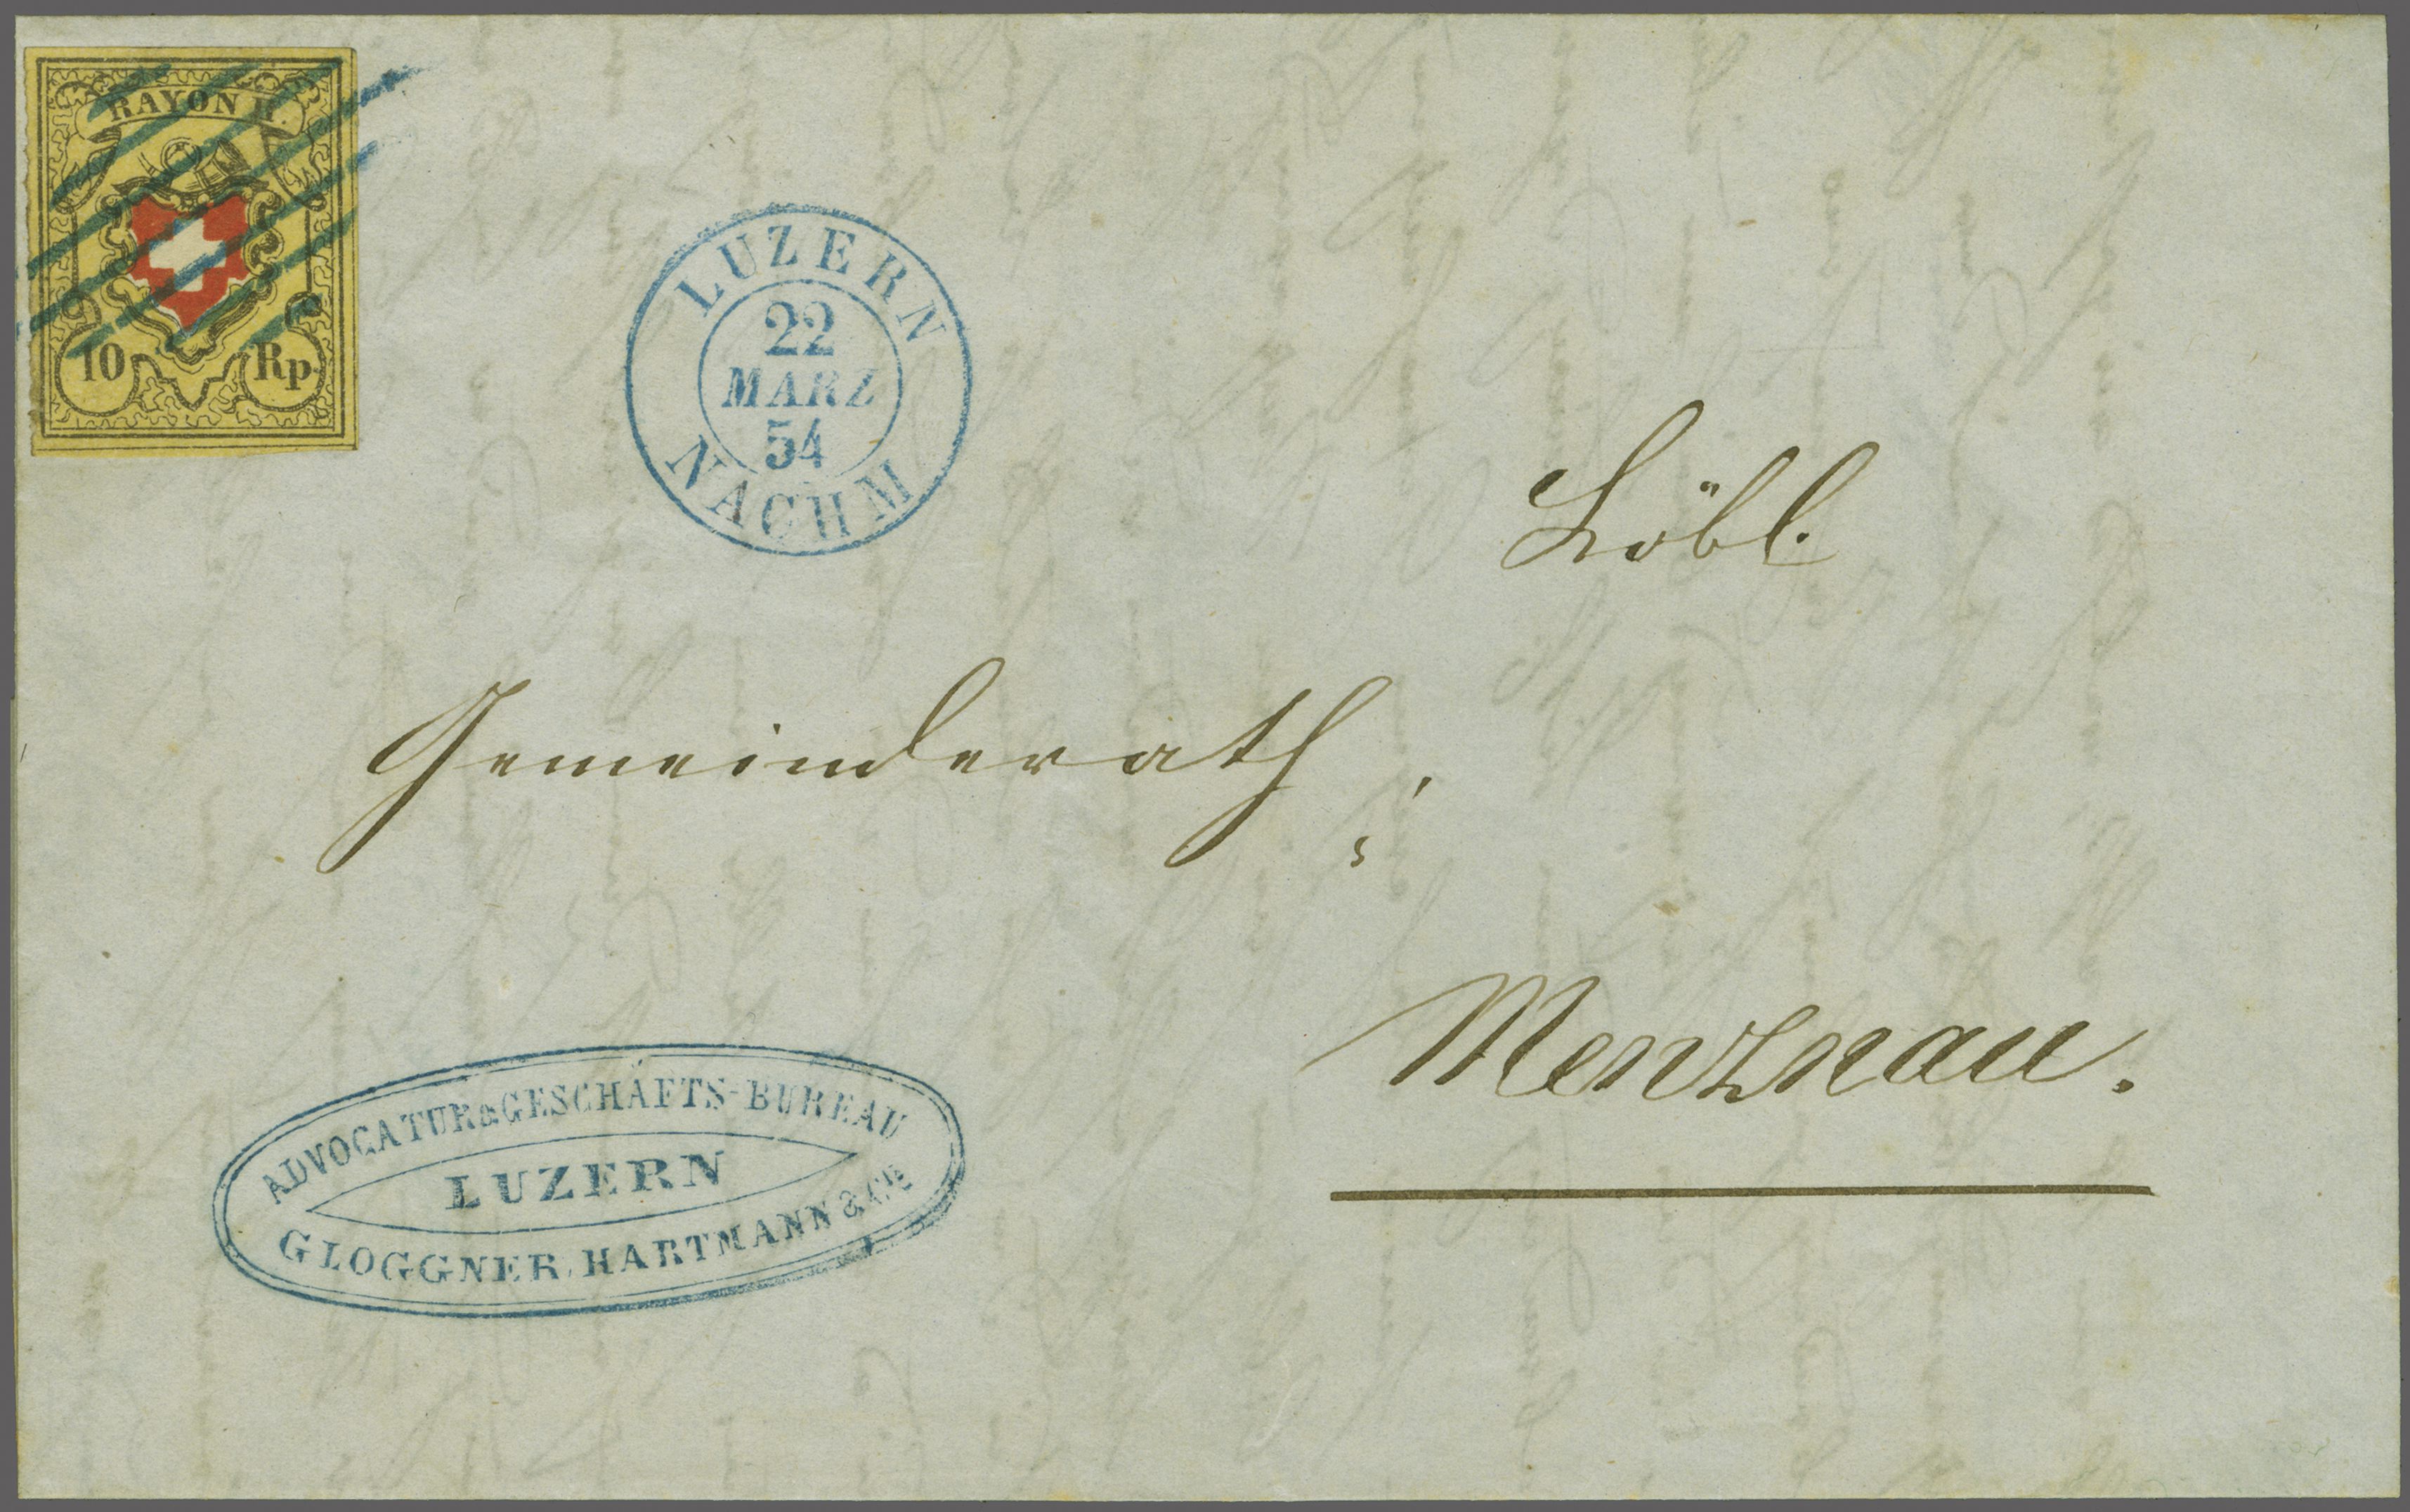 RAYON II.
10 Rp.
LUZERN
22
MARZ
54
NACHM
Löbl.
Gemeinderath
Menznau.
ADVOCATUR & GESCHÄFTS-BUREAU
LUZERN
GLOGGNER, HARTMANN & CIE